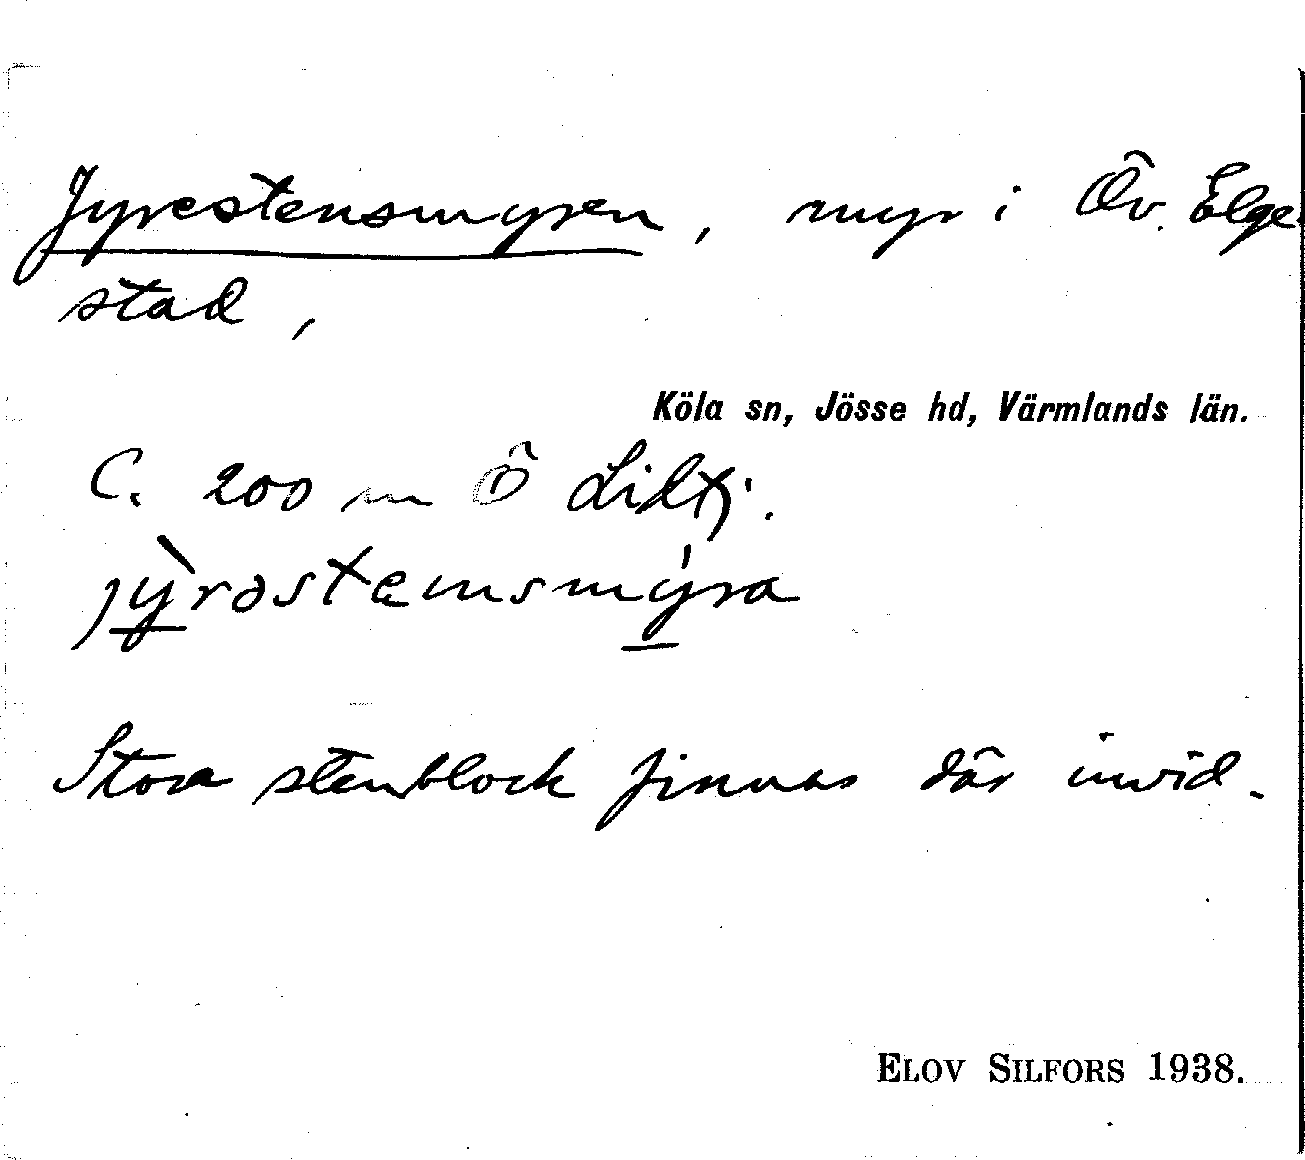 Jyrestensmyren, myr i Öv. Elge
stad,
Köla sn, Jösse hd, Värmlands län.
C. 200 m Ö Liltj.
jỳrəstensmýra
Stora stenblock finnas där invid.
ELOV SILFORS 1938.